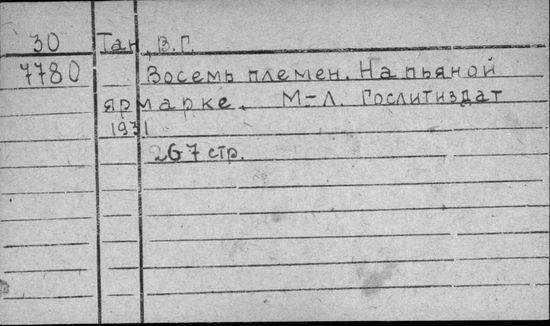 30 Тан, В.Г.
7780 Восемь племен. На пьяной
ярмарке. М-Л. Гослитиздат
1931
267 стр.